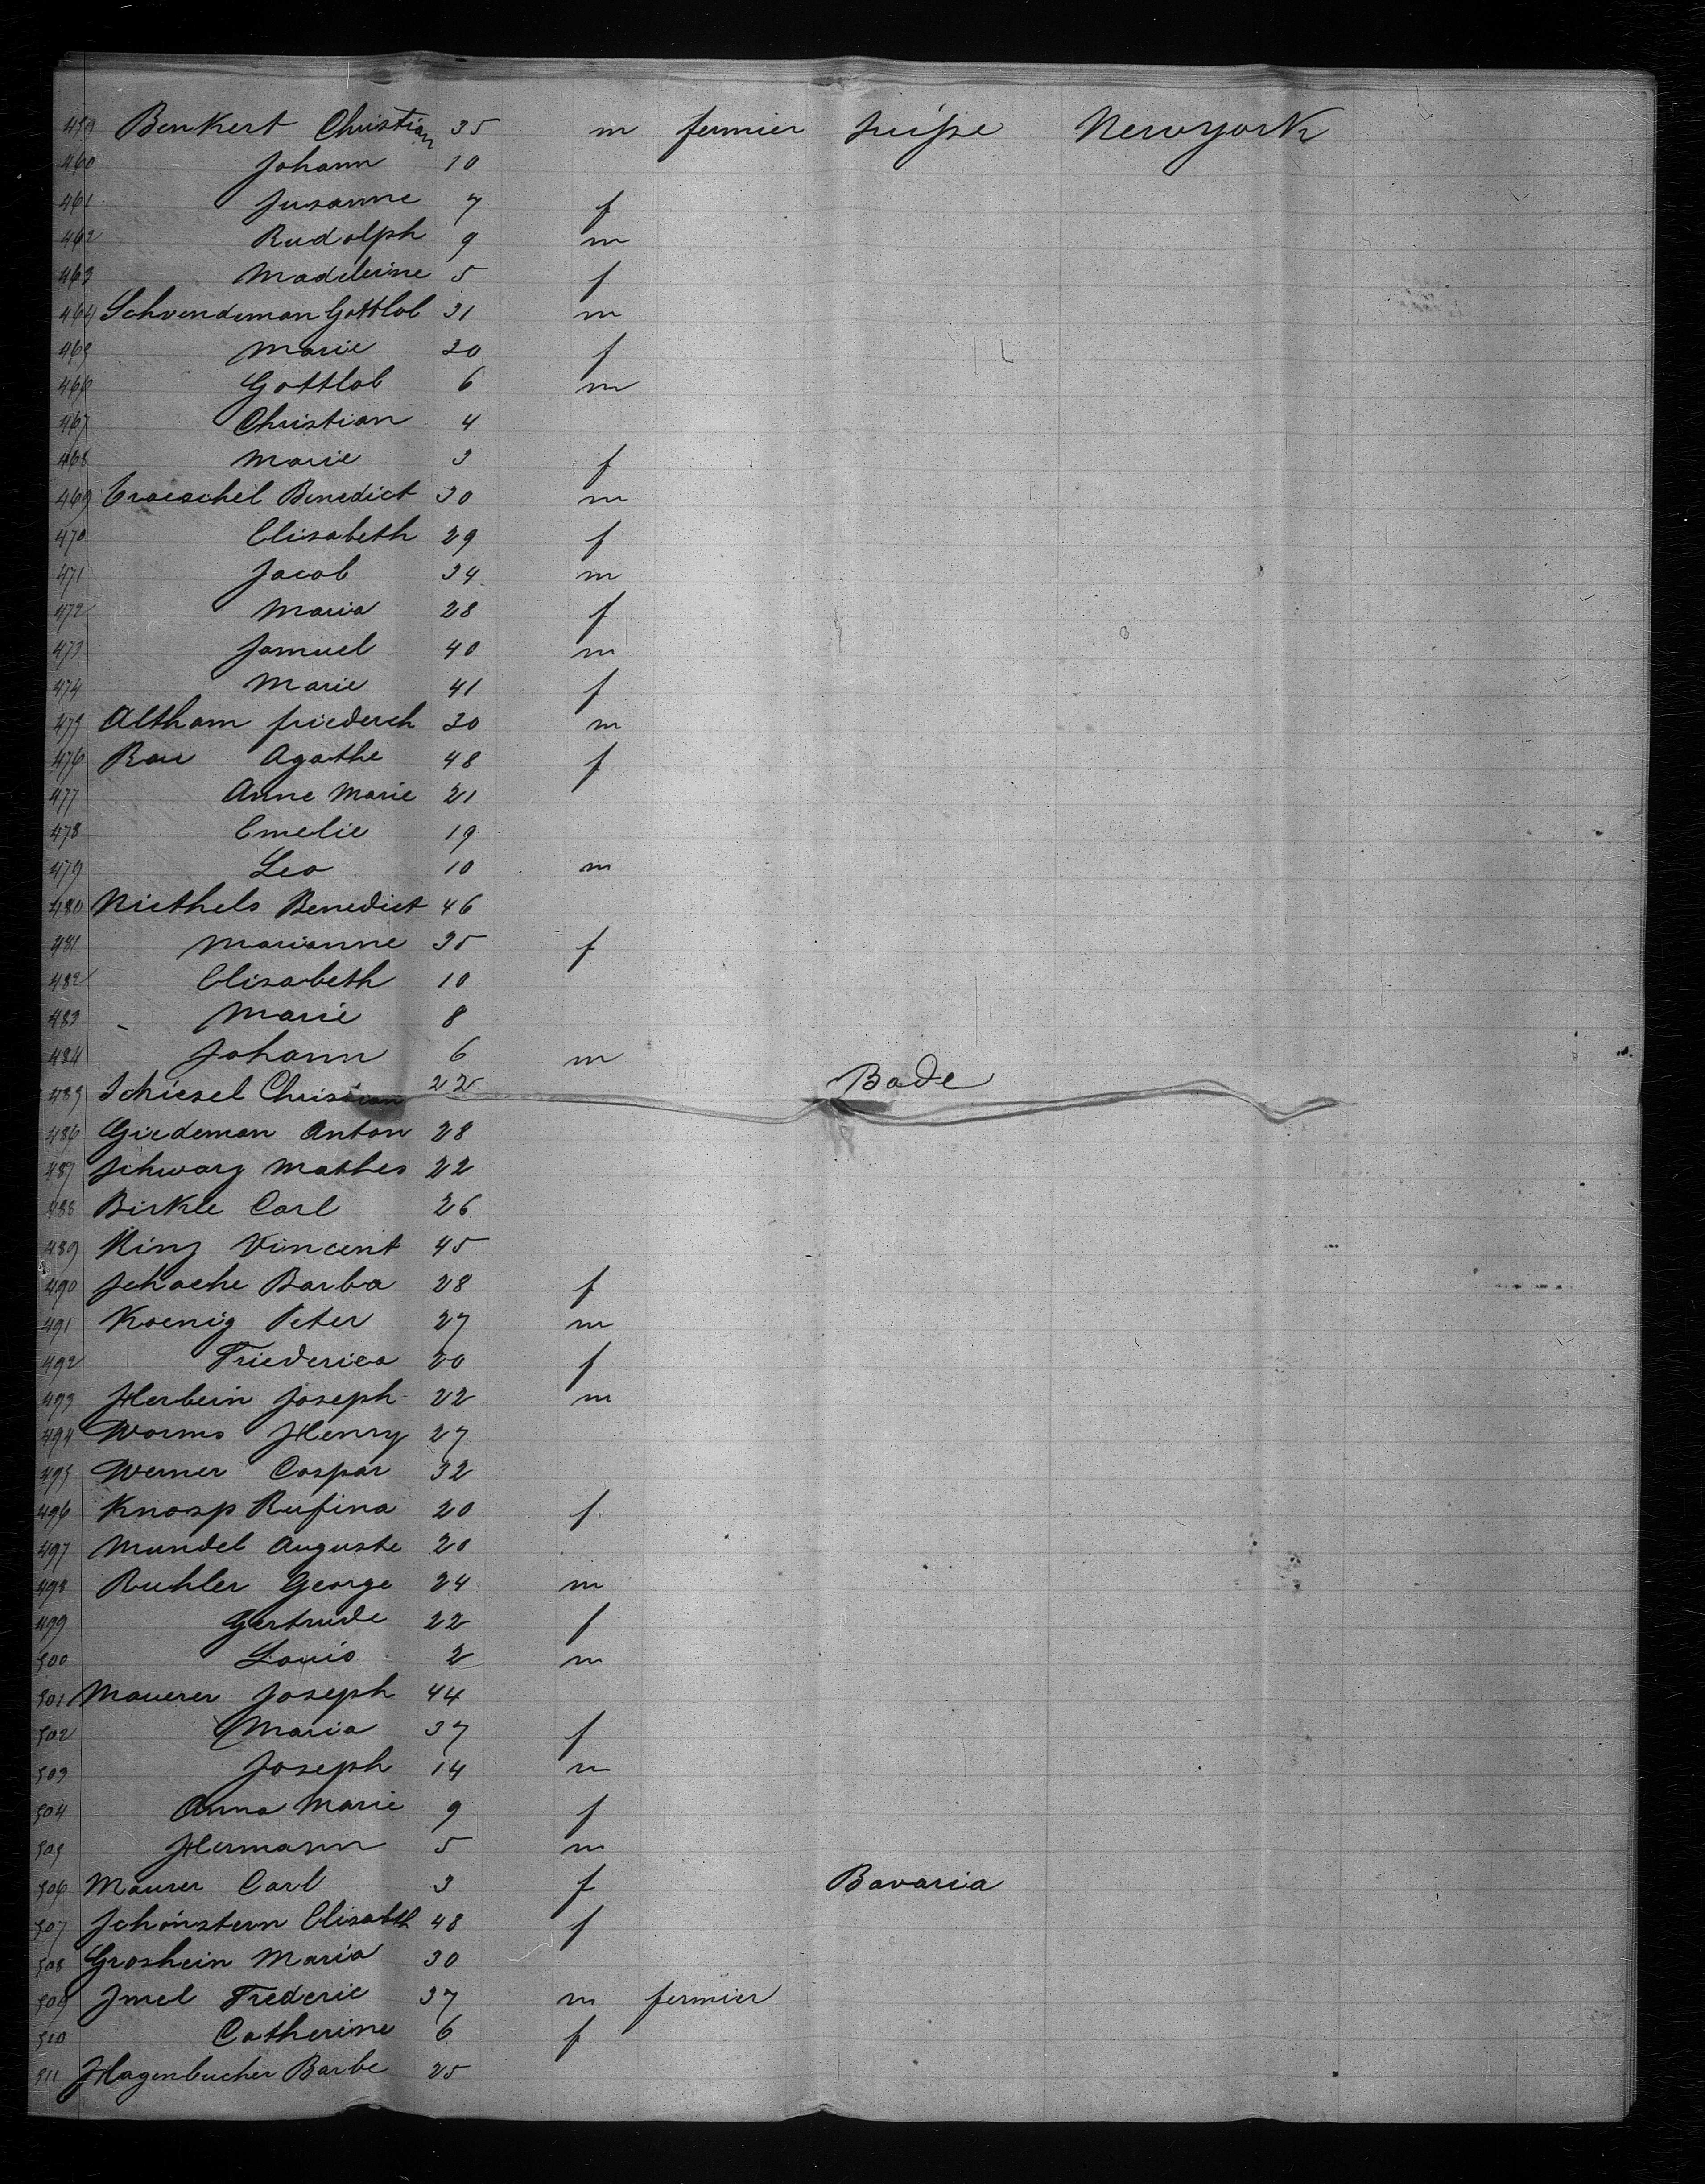 459 Benkert Christian 35 m fermier Suisse Newyork
460 Johann 10
461 Susanne 7 f
462 Rudolph 9 m
463 Madeleine 5 f
464 Schwendeman Gottlob 31 m
465 Marie 30 f
466 Gottlob 6 m
467 Christian 4
468 Marie 3 f
469 Troeschel Benedict 30 m
470 Elisabeth 29 f
471 Jacob 34 m
472 Maria 28 f
473 Samuel 40 m
474 Marie 41 f
475 Altham friederch 30 m
476 Rau Agathe 48 f
477 Anne Marie 21
478 Emelie 19
479 Leo 10 m
480 Niethels Benedict 46
481 Marianne 35 f
482 Elisabeth 10
483 Marie 8
484 Johann 6 m
485 Schiesel Christian 22 Bade
486 Giedeman Anton 28
487 Schwarz Mathes 22
488 Birkle Carl 26
489 King Vincent 45
490 Schache Barba 28 f
491 Koenig Peter 27 m
492 Friederica 20 f
493 Herbein Joseph 22 m
494 Worms Henry 27
495 Werner Caspar 32
496 Knosp Rufina 20 f
497 Mundel Auguste 20
498 Buhler George 24 m
499 Gertrude 22 f
500 Louis 2 m
501 Mauerer Joseph 44
502 Maria 37 f
503 Joseph 14 m
504 Anna Marie 9 f
505 Hermann 5 m
506 Maurer Carl 3 f Bavaria
507 Schönstern Elisabth 48 f
508 Groshein Maria 30
509 Imel Fréderic 37 m fermier
510 Catherine 6 f
511 Hagenbucher Barbe 25